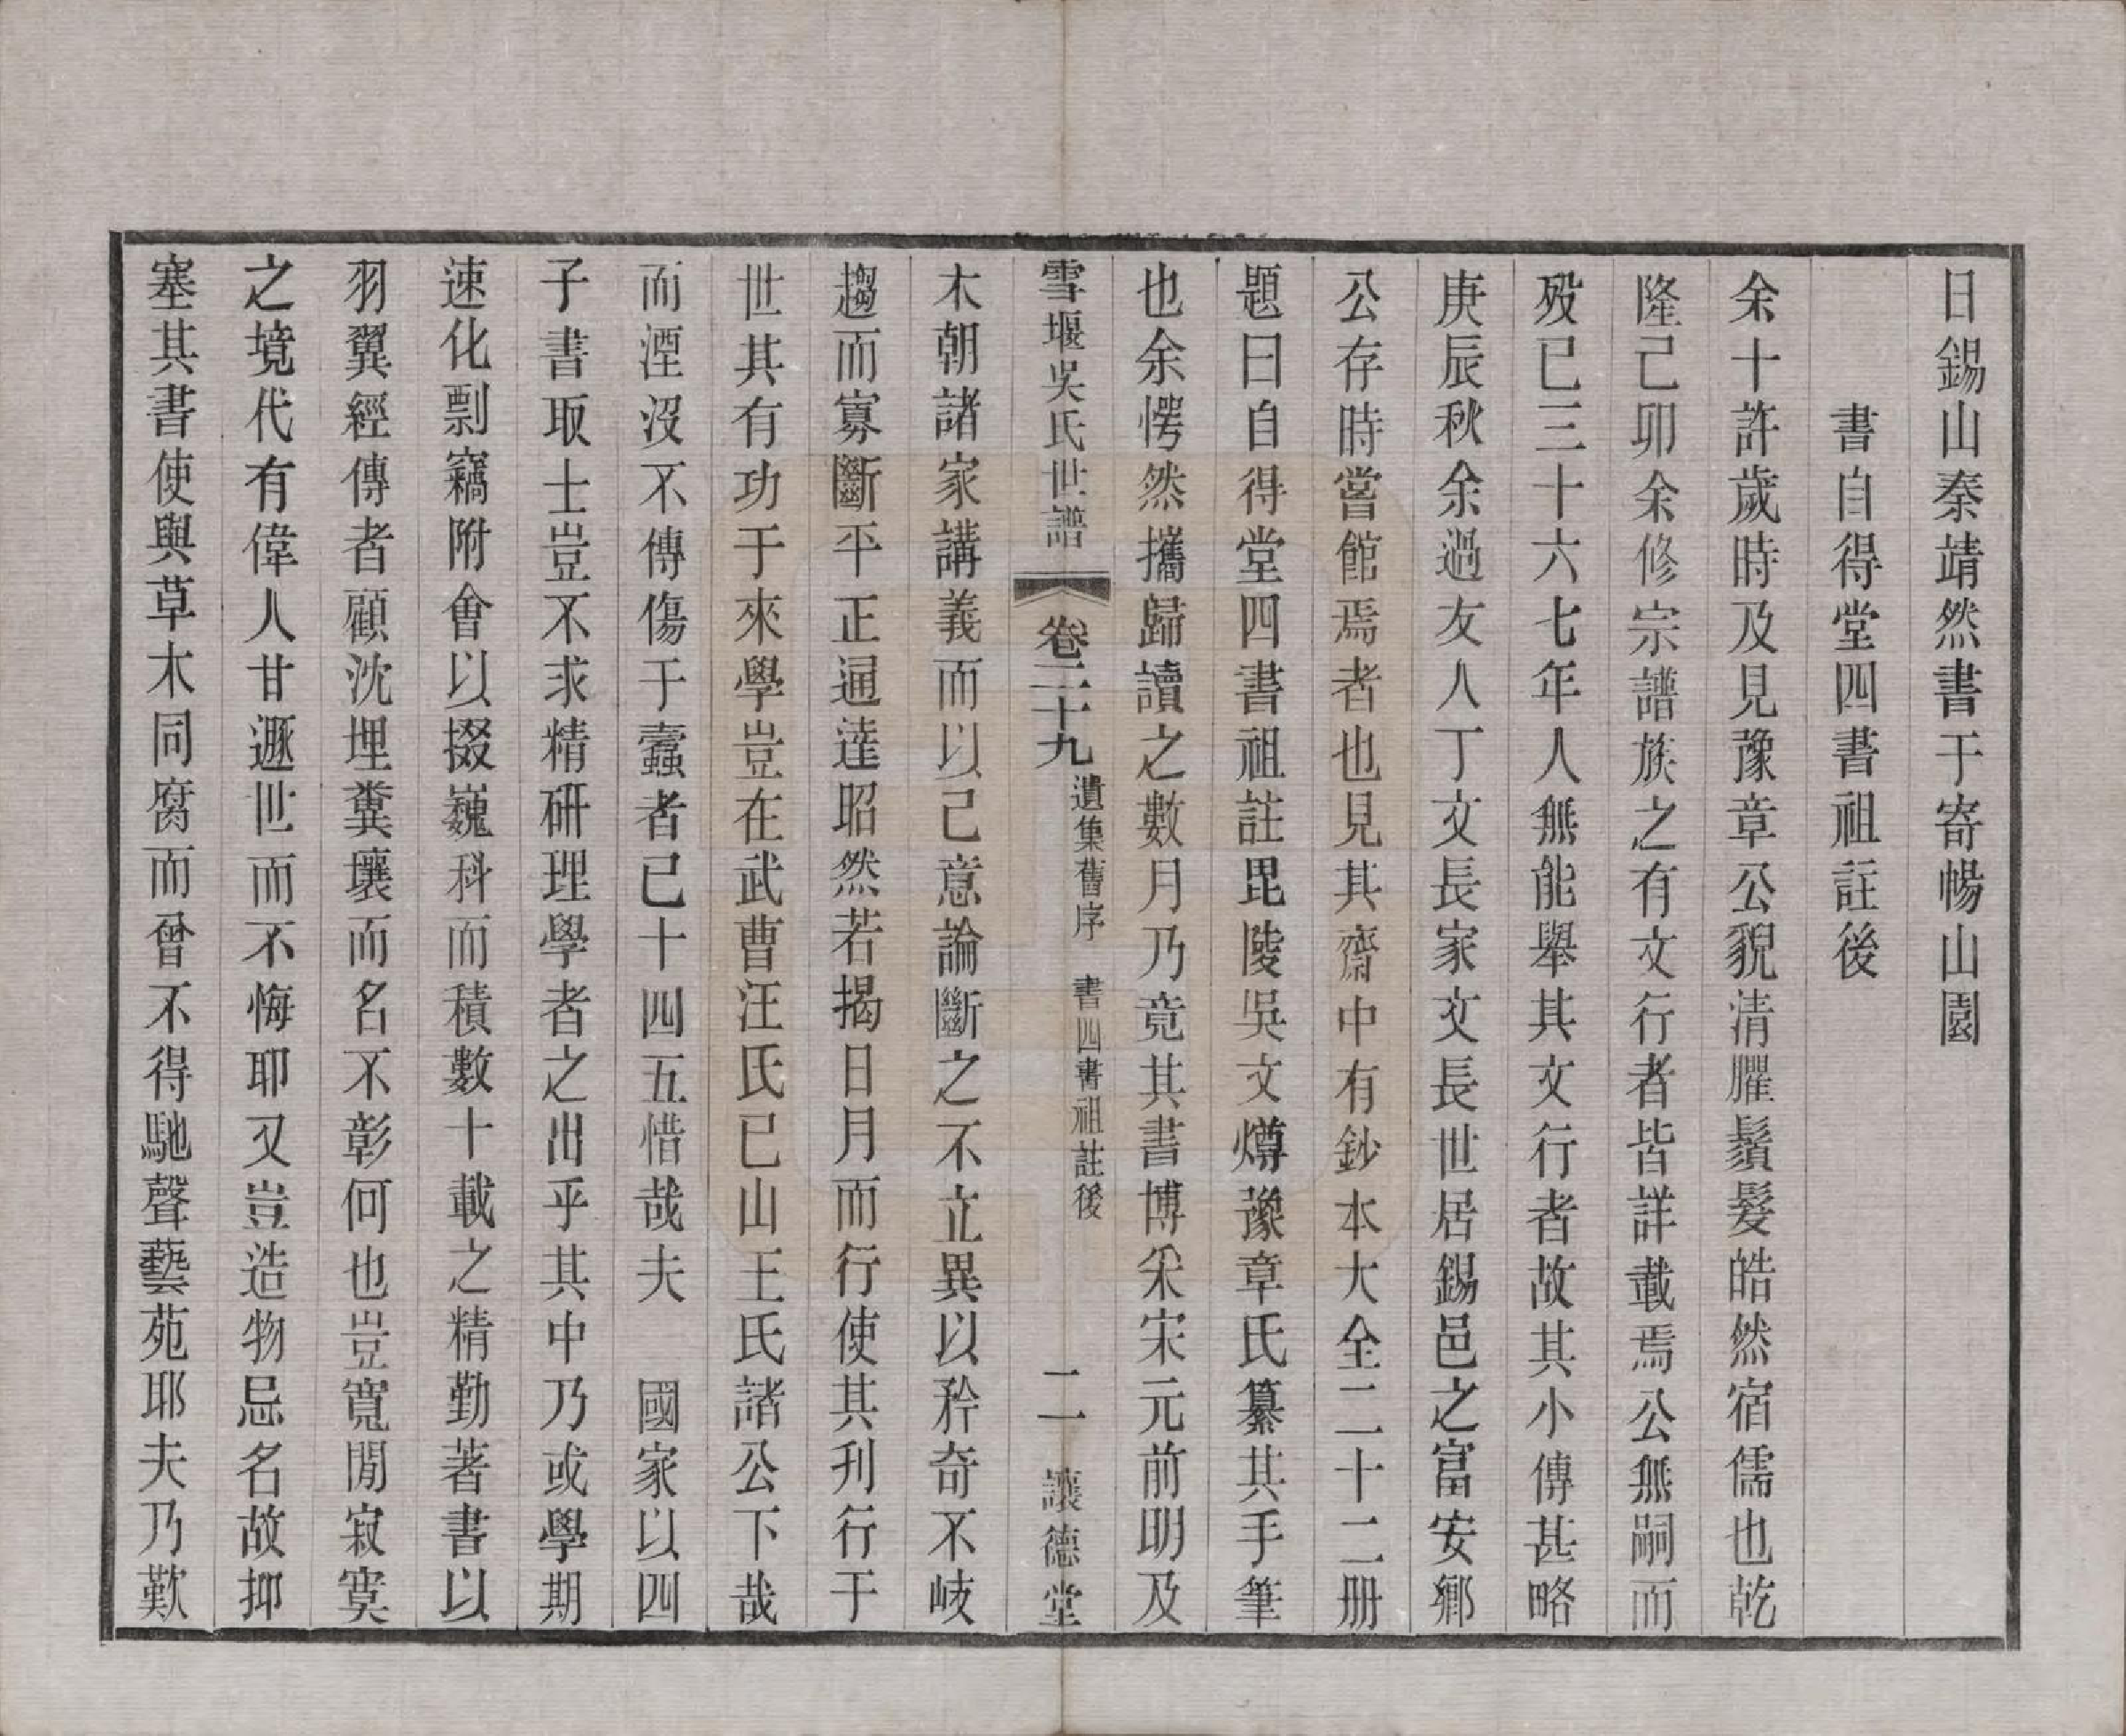 日錫山秦靖然書于寄暢山園
書自得堂四書祖註後
余十許歲時及見豫章公貌清臞鬚髮皓然宿儒也乾
隆己卯余修宗譜族之有文行者皆詳載焉公無嗣而
歿已三十六七年人無能舉其文行者故其小傳甚略
庚辰秋余過友人丁文長家文長世居錫邑之富安鄉
公存時嘗館焉者也見其齋中有鈔本大全二十二册
題曰自得堂四書祖註毘陵吳文燇豫章氏纂其手筆
也余愕然攜歸讀之數月乃竟其書博采宋元前明及
雪堰吳氏世譜 卷二十九 遺集舊序 書四書祖註後 二一 讓德堂
本朝諸家講義而以己意論斷之不立異以矜奇不岐
趨而寡斷平正通達昭然若揭日月而行使其刋行于
世其有功于來學豈在武曹汪氏已山王氏諸公下哉
而湮沒不傳傷于蠹者已十四五惜哉夫 國家以四
子書取士豈不求精研理學者之出乎其中乃或學期
速化剽竊附會以掇巍科而積數十載之精勤著書以
羽翼經傳者顧沈埋糞壤而名不彰何也豈寬閒寂寞
之境代有偉人甘遯世而不悔耶又豈造物忌名故抑
塞其書使與草木同腐而曾不得馳聲藝苑耶夫乃歎